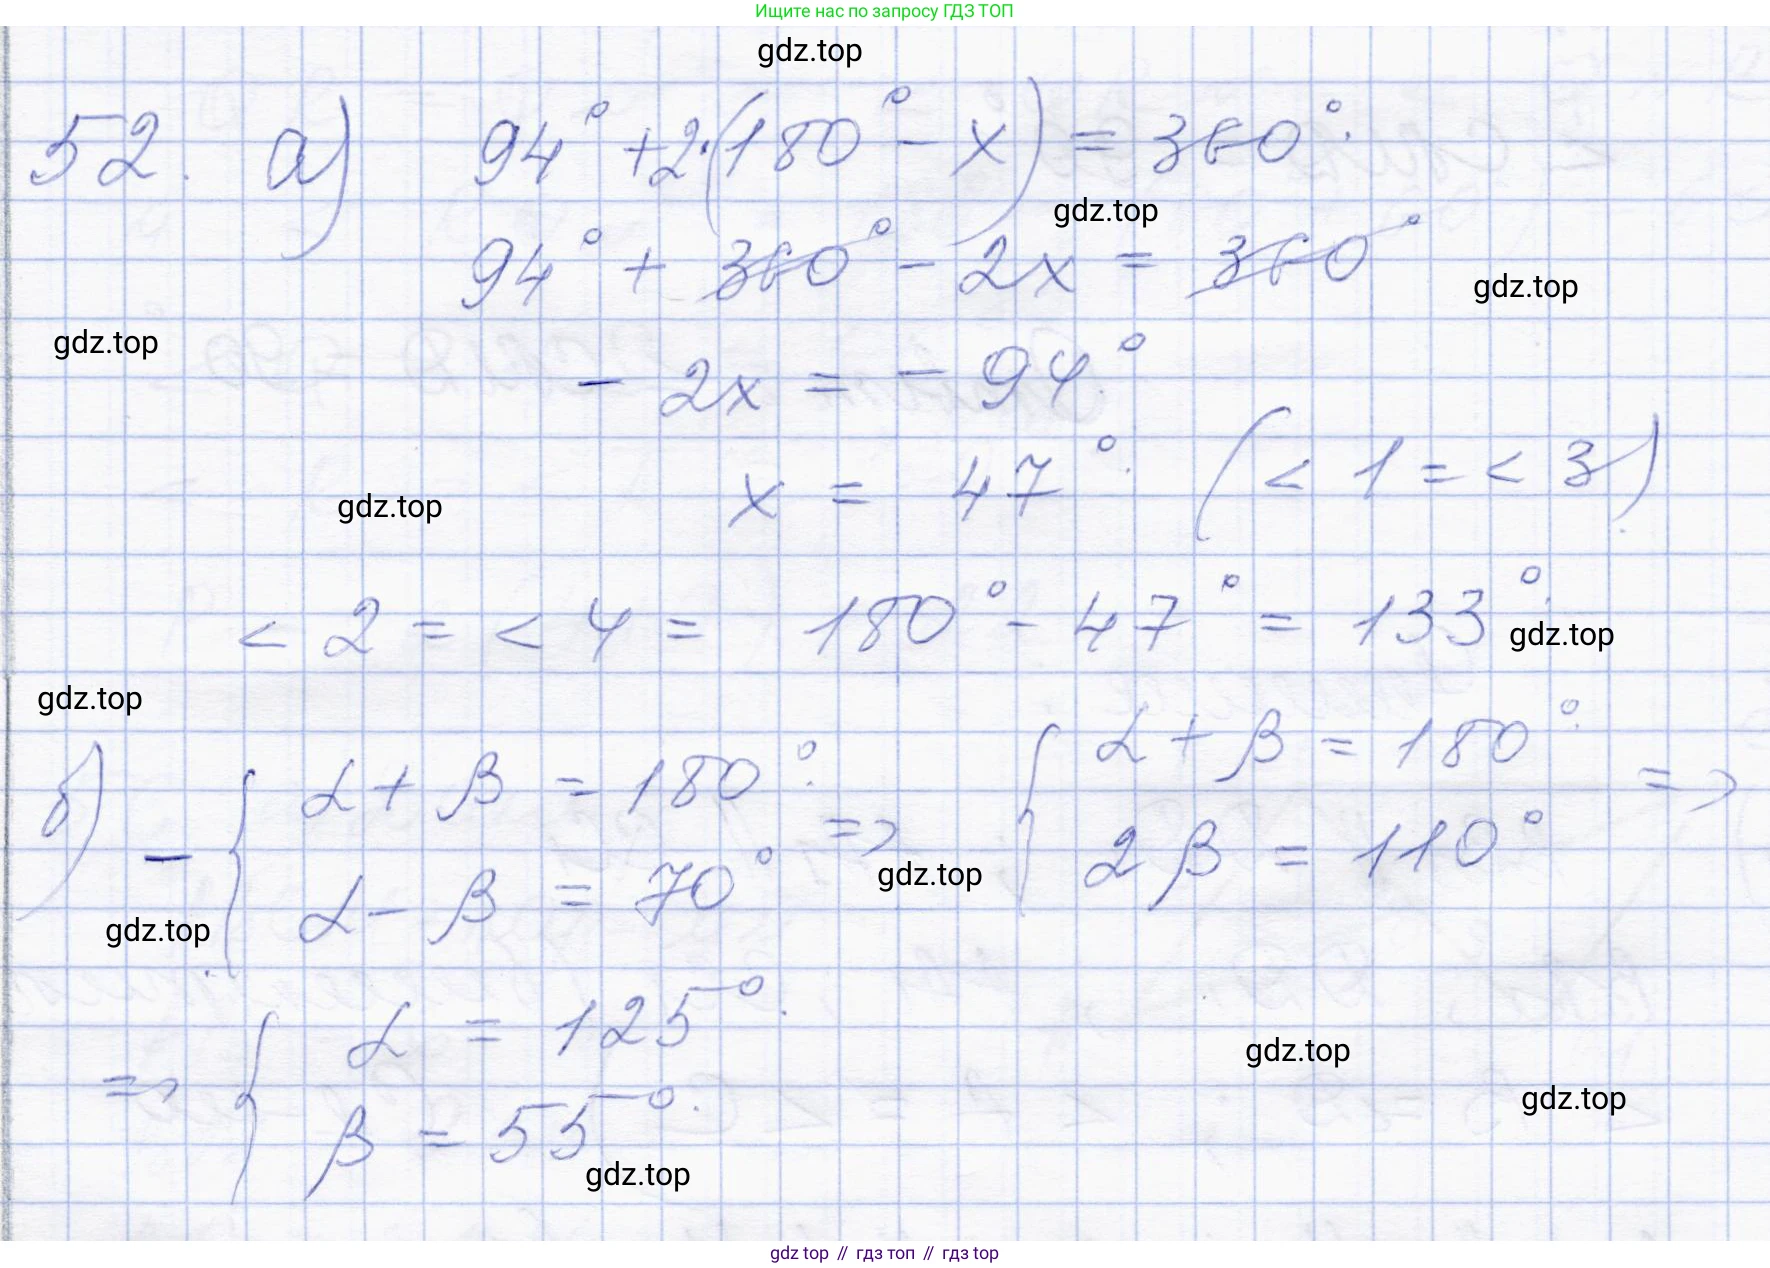 Ищите нас по запросу ГДЗ ТОП
gdz.top
52. а) 94° + 2·(180° - x) = 360°.
gdz.top
94° + 360° - 2x = 360°
gdz.top
gdz.top
- 2x = - 94°.
x = 47°. (< 1 = < 3).
gdz.top
< 2 = < 4 = 180° - 47° = 133°.
gdz.top
gdz.top
б) - { α + β = 180°. => { α + β = 180°. =>
α - β = 70° 2β = 110°
gdz.top
gdz.top
=> { α = 125°.
β = 55°.
gdz.top
gdz.top
gdz.top
gdz top // гдз топ // гдз top